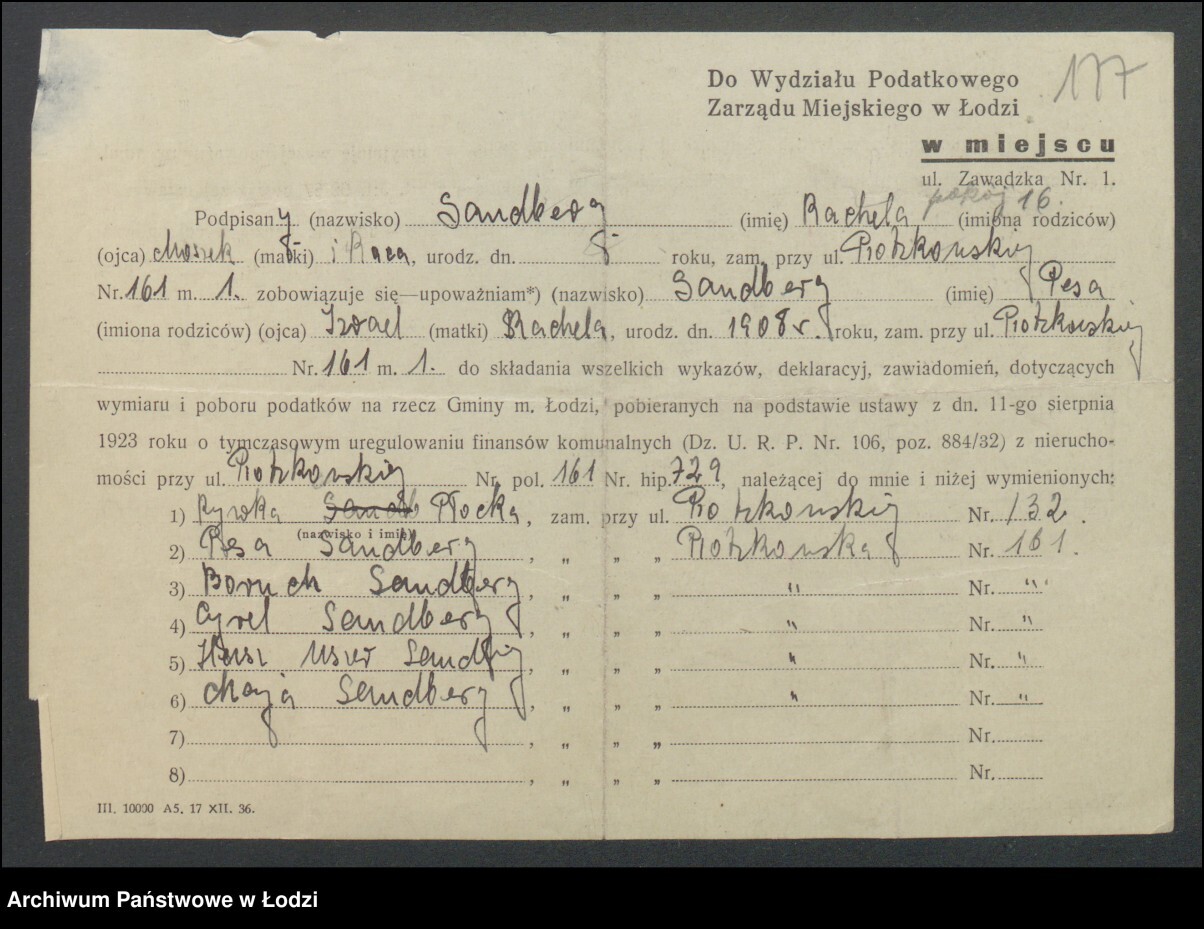 Do Wydziału Podatkowego 177
Zarządu Miejskiego w Łodzi
w miejscu
ul. Zawadzka Nr. 1.
pokój 16.
Podpisany (nazwisko) Sandberg (imię) Rachela (imiona rodziców)
(ojca) Moszek (matki) i , urodz. dn. roku, zam. przy ul. Piotrkowskiej
Nr. 161 m. 1. zobowiązuje się—upoważniam*) (nazwisko) Sandberg (imię) Pesa
(imiona rodziców) (ojca) Izrael (matki) Rachela, urodz. dn. 1908 r. roku, zam. przy ul. Piotrkowskiej
Nr. 161 m. 1. do składania wszelkich wykazów, deklaracyj, zawiadomień, dotyczących
wymiaru i poboru podatków na rzecz Gminy m. Łodzi, pobieranych na podstawie ustawy z dn. 11-go sierpnia
1923 roku o tymczasowym uregulowaniu finansów komunalnych (Dz. U. R. P. Nr. 106, poz. 884/32) z nierucho-
mości przy ul. Piotrkowskiej Nr. pol. 161 Nr. hip. 729, należącej do mnie i niżej wymienionych:
1) Rywka Płocka, zam. przy ul. Piotrkowskiej Nr. 132.
(nazwisko i imię)
2) Pesa Sandberg, „ „ „ Piotrkowska Nr. 161.
3) Boruch Sandberg, „ „ „ " Nr. "
4) Cyrel Sandberg, „ „ „ " Nr. "
5) Hersz Uszer Sandberg, „ „ „ " Nr. "
6) Chaja Sandberg, „ „ „ " Nr. "
7) , „ „ „ Nr.
8) , „ „ „ Nr.
III. 10000 A5. 17 XII. 36.
Archiwum Państwowe w Łodzi